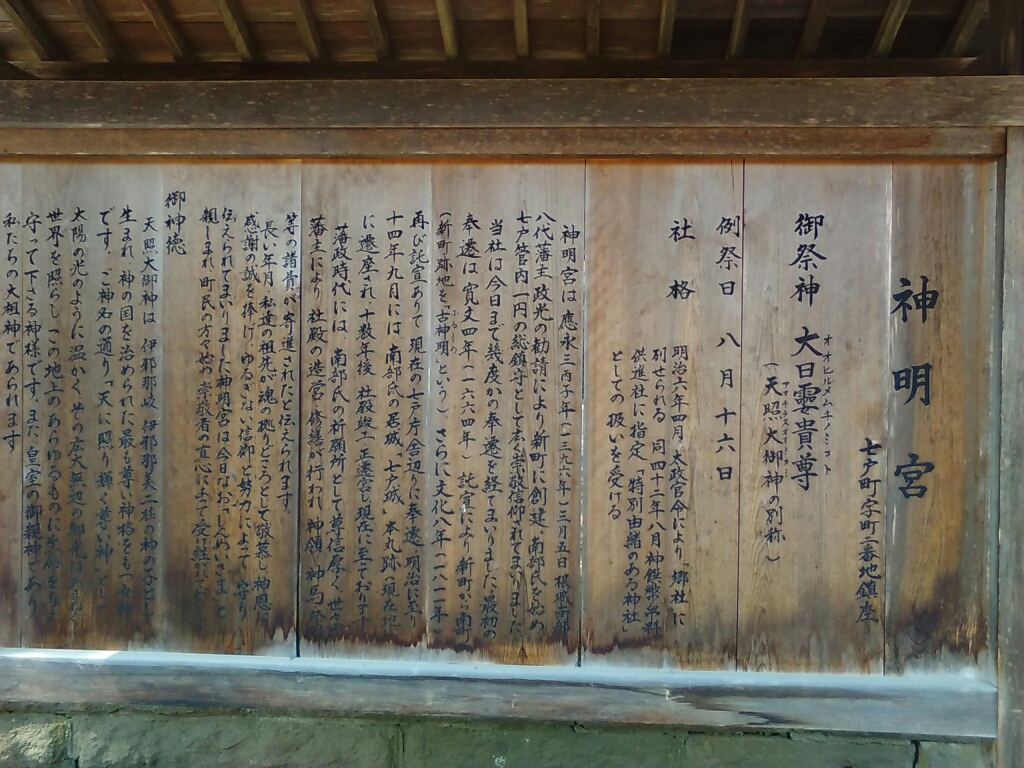 神明宮
七戸町字町二番地鎮座
御祭神 大日孁貴尊
オオヒルメムチノミコト
(天照大御神の別称)
アマテラスオオミカミ
例祭日 八月十六日
社格 明治六年四月 太政官令により「郷社」に
別せられる 同四十二年八月神饌幣帛料
供進社に指定「特別由緒のある神社」
としての扱いを受ける
神明宮は應永三丙子年(一三九六年)三月五日 根城南部
八代藩主政光の勧請により新町に創建 南部氏を始め
七戸管内一円の総鎮守として広く崇敬信仰されてまいりました
当社は今日まで幾度かの奉遷を経てまいりました 最初の
奉遷は寛文四年(一六六四年) 託宣により新町から南町
(新町跡地を古神明という) さらに文化八年(一八一一年)
ふるしめ
再び託宣ありて現在の七戸庁舎辺りに奉遷 明治に至り
十四年九月には南部氏の居城「七戸城」本丸跡へ現在地
に遷座され 十数年後 社殿竣工 正遷宮し現在に至ております
藩政時代には 南部氏の祈願所として尊信厚く 世々
藩主により 社殿の造営 修繕が行われ 神領 神馬 祭
等の諸貴が寄進されたと伝えられます
長い年月 私達の祖先が魂の拠りどころとして敬慕し 神恩に
感謝の誠を捧げ、ゆるぎない信仰と努力によって 守り
伝えられてまいりました神明宮は今日なお「しんめいさま」と
親しまれ 町民の方々始め崇敬者の直心によって受け継がれて
御神徳
天照大御神は 伊那那岐 伊那那美二柱の神の子として
生まれ 神の国を治められた最も尊い神格をもつ女神
です。ご神名の通り「天に照り輝く尊い神」とし
太陽の光のように温かく その広大無辺の御光は
世界を照らし この地上のあらゆるものに生命を
守って下さる神様です。また 皇室の御親神であり
私たちの大祖神であられます